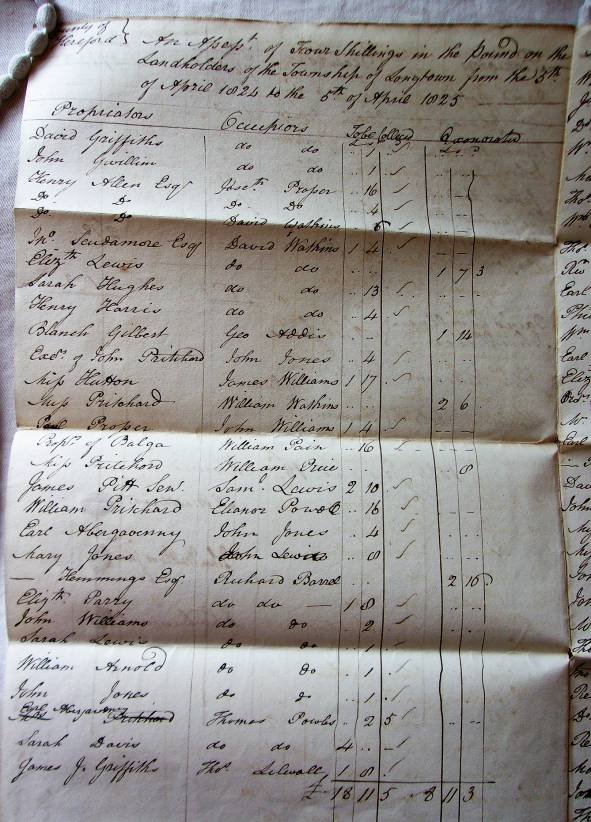 County of
Hereford } An Assesst. of Four Shillings in the Pound on the
Landholders of the Township of Longtown from the 5th
of April 1824 to the 5th of April 1825
Propriators Occupiors To be Collected Exonorated
David Griffiths do do .. 1 ..
John Gwillim do do .. 1 ..
Henry Allen Esqr Joseth Proper .. 16 ..
Do Do Do Do .. 4 ..
Do Do David Watkins .. 6
Jno. Scudamore Esqr David Watkins 1 4 ..
Elizth Lewis do do .. .. .. 1 7 3
Sarah Hughes do do .. 13 ..
Henry Harris do do .. 4 ..
Blanch Gilbert Geo Addis .. .. 1 14
Exrs. of John Pritchard John Jones .. 4 ..
Miss Hutton James Williams 1 17 ..
Miss Pritchard William Watkins .. .. .. 2 6 ..
Paul Proper John Williams 1 4 ..
of Balga William Pain .. 16 ..
Miss Pritchard William Price .. .. 8
James Pitt Senr. Saml. Lewis 2 10 ..
William Pritchard Eleanor Powel .. 16 ..
Earl Abergavenny John Jones .. 4 ..
Mary Jones John Lewis .. 8 ..
— Hemmings Esqr Richard Barrel .. .. 2 16
Elizth. Parry do do — 1 8 ..
John Williams do Do .. 2 ..
Sarah Lewis do Do .. 1 ..
William Arnold do Do .. 1 ..
John Jones do Do .. 1 ..
Earl Abergavenny
Thos Pritchard Thomas Powles .. 2 5
Sarah Davis do do 4 .. –
James J. Griffiths Thos. Lilwall 1 8 ..
£ 18 11 5 .. 8 11 3